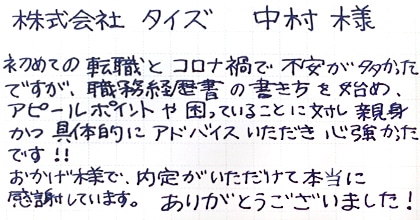 株式会社 タイズ 中村 様
初めての 転職と コロナ禍で 不安が多かった
ですが、職務経歴書の書き方を始め、
アピールポイントや困っていることに対し親身
かつ具体的にアドバイスいただき心強かった
です!!
おかげ様で、内定がいただけて本当に
感謝しています。 ありがとうございました!